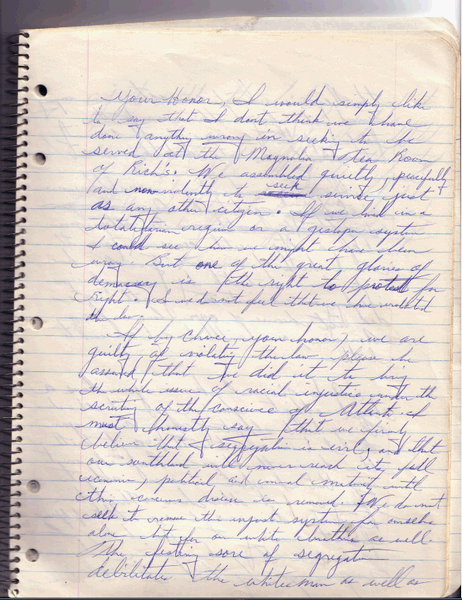 Your Honor, I would simply like
to say that I don't think we have
done anything wrong in seeking to be
served at the Magnolia Tea Room
of Rich's. We assembled quietly, peacefully
and nonviolently to seek service just
as any other citizen. If we lived in a
totalitarian regime or a gestapo system
I could see how we might have been
wrong. But one of the great glories of
democracy is the right to protest for
right. We do not feel that we have violated
the law.
If by chance, your honor, we are
guilty of violating the law, please be
assured that we did it to bring
the whole issue of racial injustice under the
scrutiny of the conscience of Atlanta. I
must honestly say that we firmly
believe that segregation is evil, and that
our southland will never reach its full
economic, political and moral maturity until
this cancerous disease is removed. We do not
seek to remove this unjust system for ourselves
alone but for our white brothers as well.
The festering sore of segregation
debilitates the white man as well as